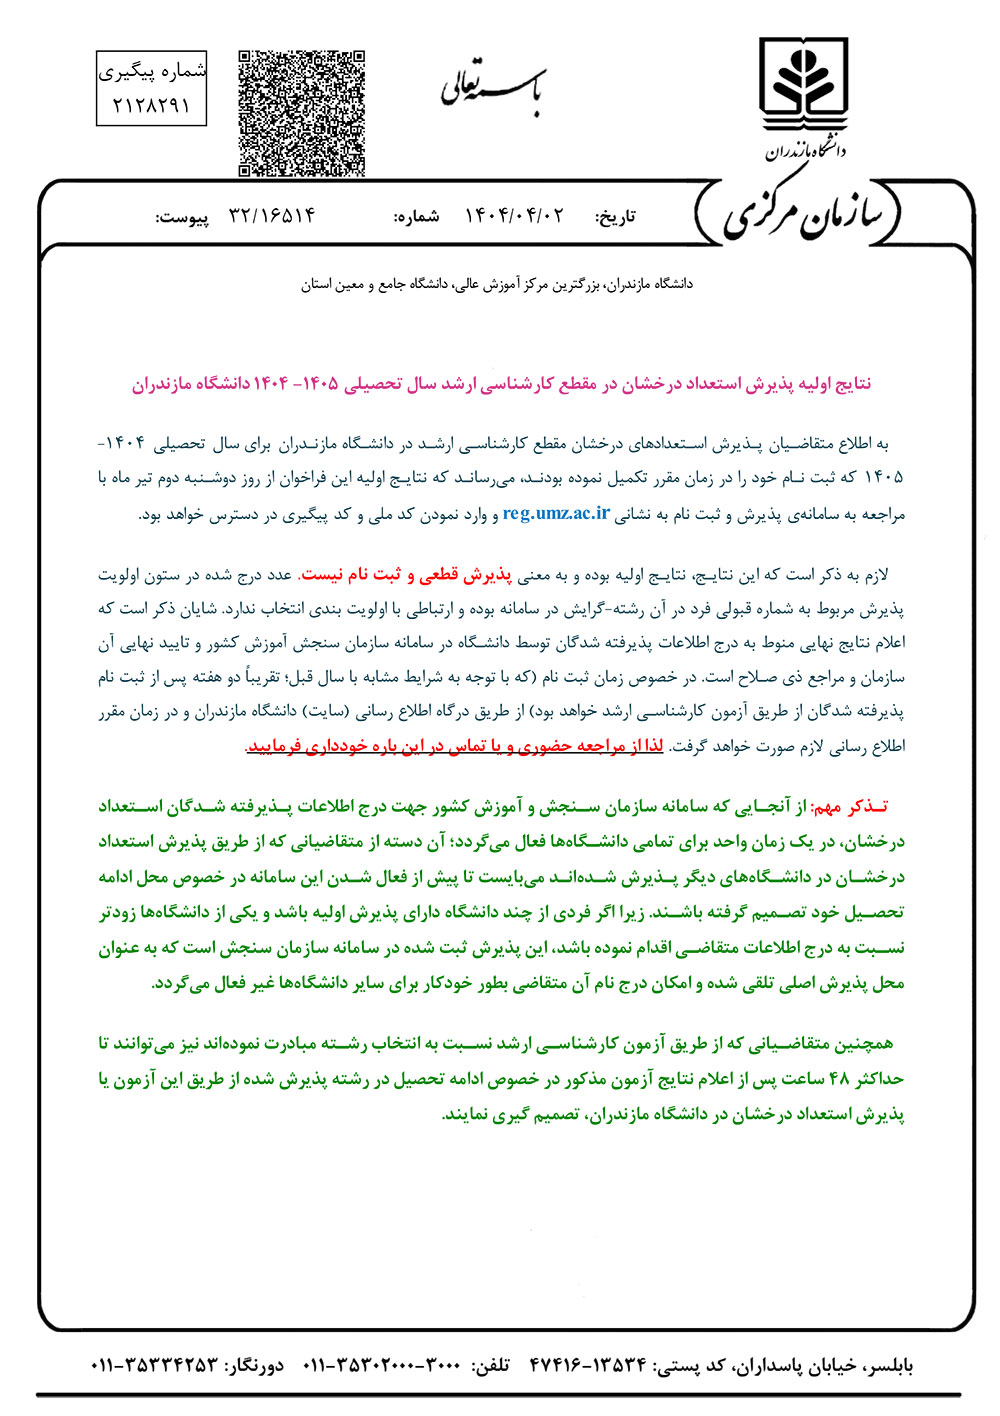 باسمه تعالی
شماره پیگیری
۲۱۲۸۲۹۱
دانشگاه مازندران
سازمان مرکزی
تاریخ: ۱۴۰۴/۰۴/۰۲ شماره: ۳۲/۱۶۵۱۴ پیوست:
دانشگاه مازندران، بزرگترین مرکز آموزش عالی، دانشگاه جامع و معین استان
نتایج اولیه پذیرش استعداد درخشان در مقطع کارشناسی ارشد سال تحصیلی ۱۴۰۵- ۱۴۰۴ دانشگاه مازندران
به اطلاع متقاضیان پذیرش استعدادهای درخشان مقطع کارشناسی ارشد در دانشگاه مازندران برای سال تحصیلی ۱۴۰۴-
۱۴۰۵ که ثبت نام خود را در زمان مقرر تکمیل نموده بودند، می‌رساند که نتایج اولیه این فراخوان از روز دوشنبه دوم تیر ماه با
مراجعه به سامانه‌ی پذیرش و ثبت نام به نشانی reg.umz.ac.ir و وارد نمودن کد ملی و کد پیگیری در دسترس خواهد بود.
لازم به ذکر است که این نتایج، نتایج اولیه بوده و به معنی پذیرش قطعی و ثبت نام نیست. عدد درج شده در ستون اولویت
پذیرش مربوط به شماره قبولی فرد در آن رشته-گرایش در سامانه بوده و ارتباطی با اولویت بندی انتخاب ندارد. شایان ذکر است که
اعلام نتایج نهایی منوط به درج اطلاعات پذیرفته شدگان توسط دانشگاه در سامانه سازمان سنجش آموزش کشور و تایید نهایی آن
سازمان و مراجع ذی صلاح است. در خصوص زمان ثبت نام (که با توجه به شرایط مشابه با سال قبل؛ تقریباً دو هفته پس از ثبت نام
پذیرفته شدگان از طریق آزمون کارشناسی ارشد خواهد بود) از طریق درگاه اطلاع رسانی (سایت) دانشگاه مازندران و در زمان مقرر
اطلاع رسانی لازم صورت خواهد گرفت. لذا از مراجعه حضوری و یا تماس در این باره خودداری فرمایید.
تذکر مهم: از آنجایی که سامانه سازمان سنجش و آموزش کشور جهت درج اطلاعات پذیرفته شدگان استعداد
درخشان، در یک زمان واحد برای تمامی دانشگاه‌ها فعال می‌گردد؛ آن دسته از متقاضیانی که از طریق پذیرش استعداد
درخشان در دانشگاه‌های دیگر پذیرش شده‌اند می‌بایست تا پیش از فعال شدن این سامانه در خصوص محل ادامه
تحصیل خود تصمیم گرفته باشند. زیرا اگر فردی از چند دانشگاه دارای پذیرش اولیه باشد و یکی از دانشگاه‌ها زودتر
نسبت به درج اطلاعات متقاضی اقدام نموده باشد، این پذیرش ثبت شده در سامانه سازمان سنجش است که به عنوان
محل پذیرش اصلی تلقی شده و امکان درج نام آن متقاضی بطور خودکار برای سایر دانشگاه‌ها غیر فعال می‌گردد.
همچنین متقاضیانی که از طریق آزمون کارشناسی ارشد نسبت به انتخاب رشته مبادرت نموده‌اند نیز می‌توانند تا
حداکثر ۴۸ ساعت پس از اعلام نتایج آزمون مذکور در خصوص ادامه تحصیل در رشته پذیرش شده از طریق این آزمون یا
پذیرش استعداد درخشان در دانشگاه مازندران، تصمیم گیری نمایند.
بابلسر، خیابان پاسداران، کد پستی: ۱۳۵۳۴-۴۷۴۱۶ تلفن: ۳۰۰۰-۳۵۳۰۲۰۰۰-۰۱۱ دورنگار: ۳۵۳۳۴۲۵۳-۰۱۱